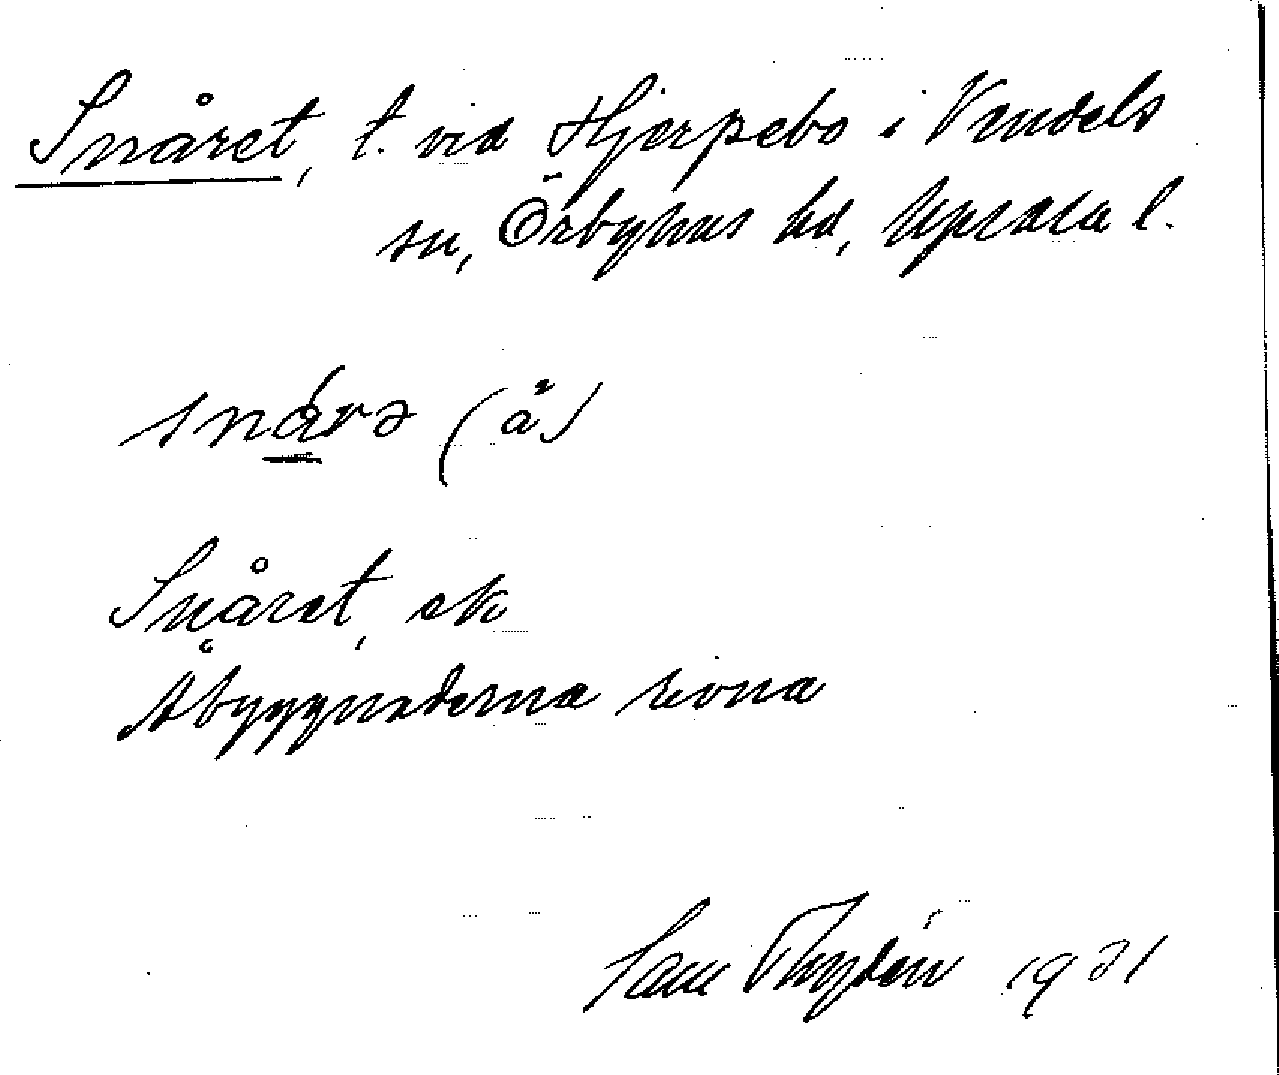 Snåret, t. vid Hjerpebo i Vendels
sn, Örbyhus hd, Upsala l.
snårə (å)
Snåret, ek
Åbyggnaderna revna
1931